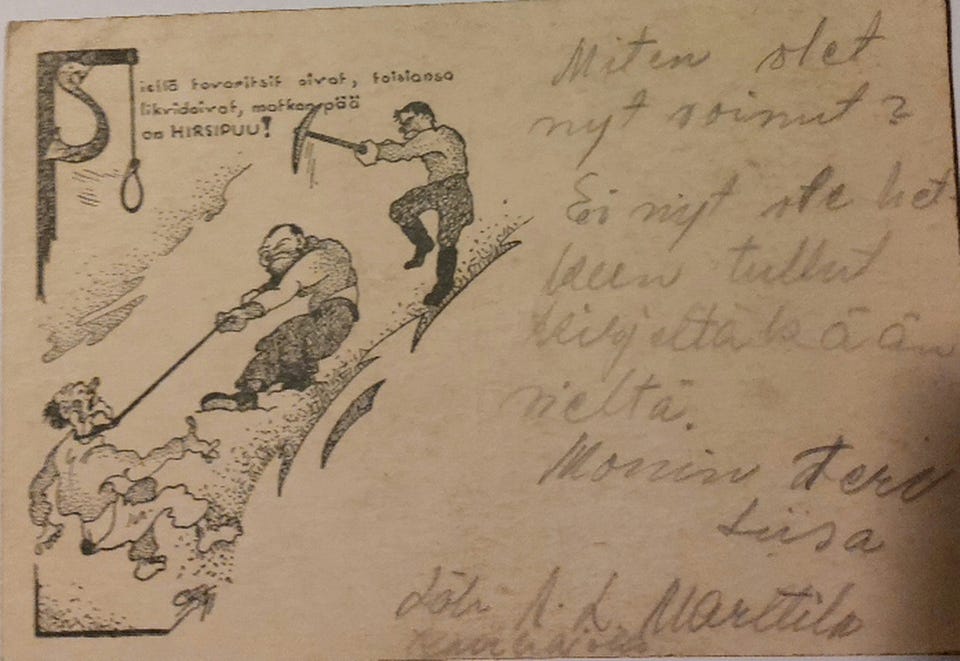 Siellä tovaritsit oivat, toisiansa
likvidoivat, matkan pää
on HIRSIPUU!
Miten olet
nyt voinut?
Ei nyt ole het-
keen tullut
kirjeltäkään
sieltä.
Monin terv
Liisa
Läh. A. L. Marttila